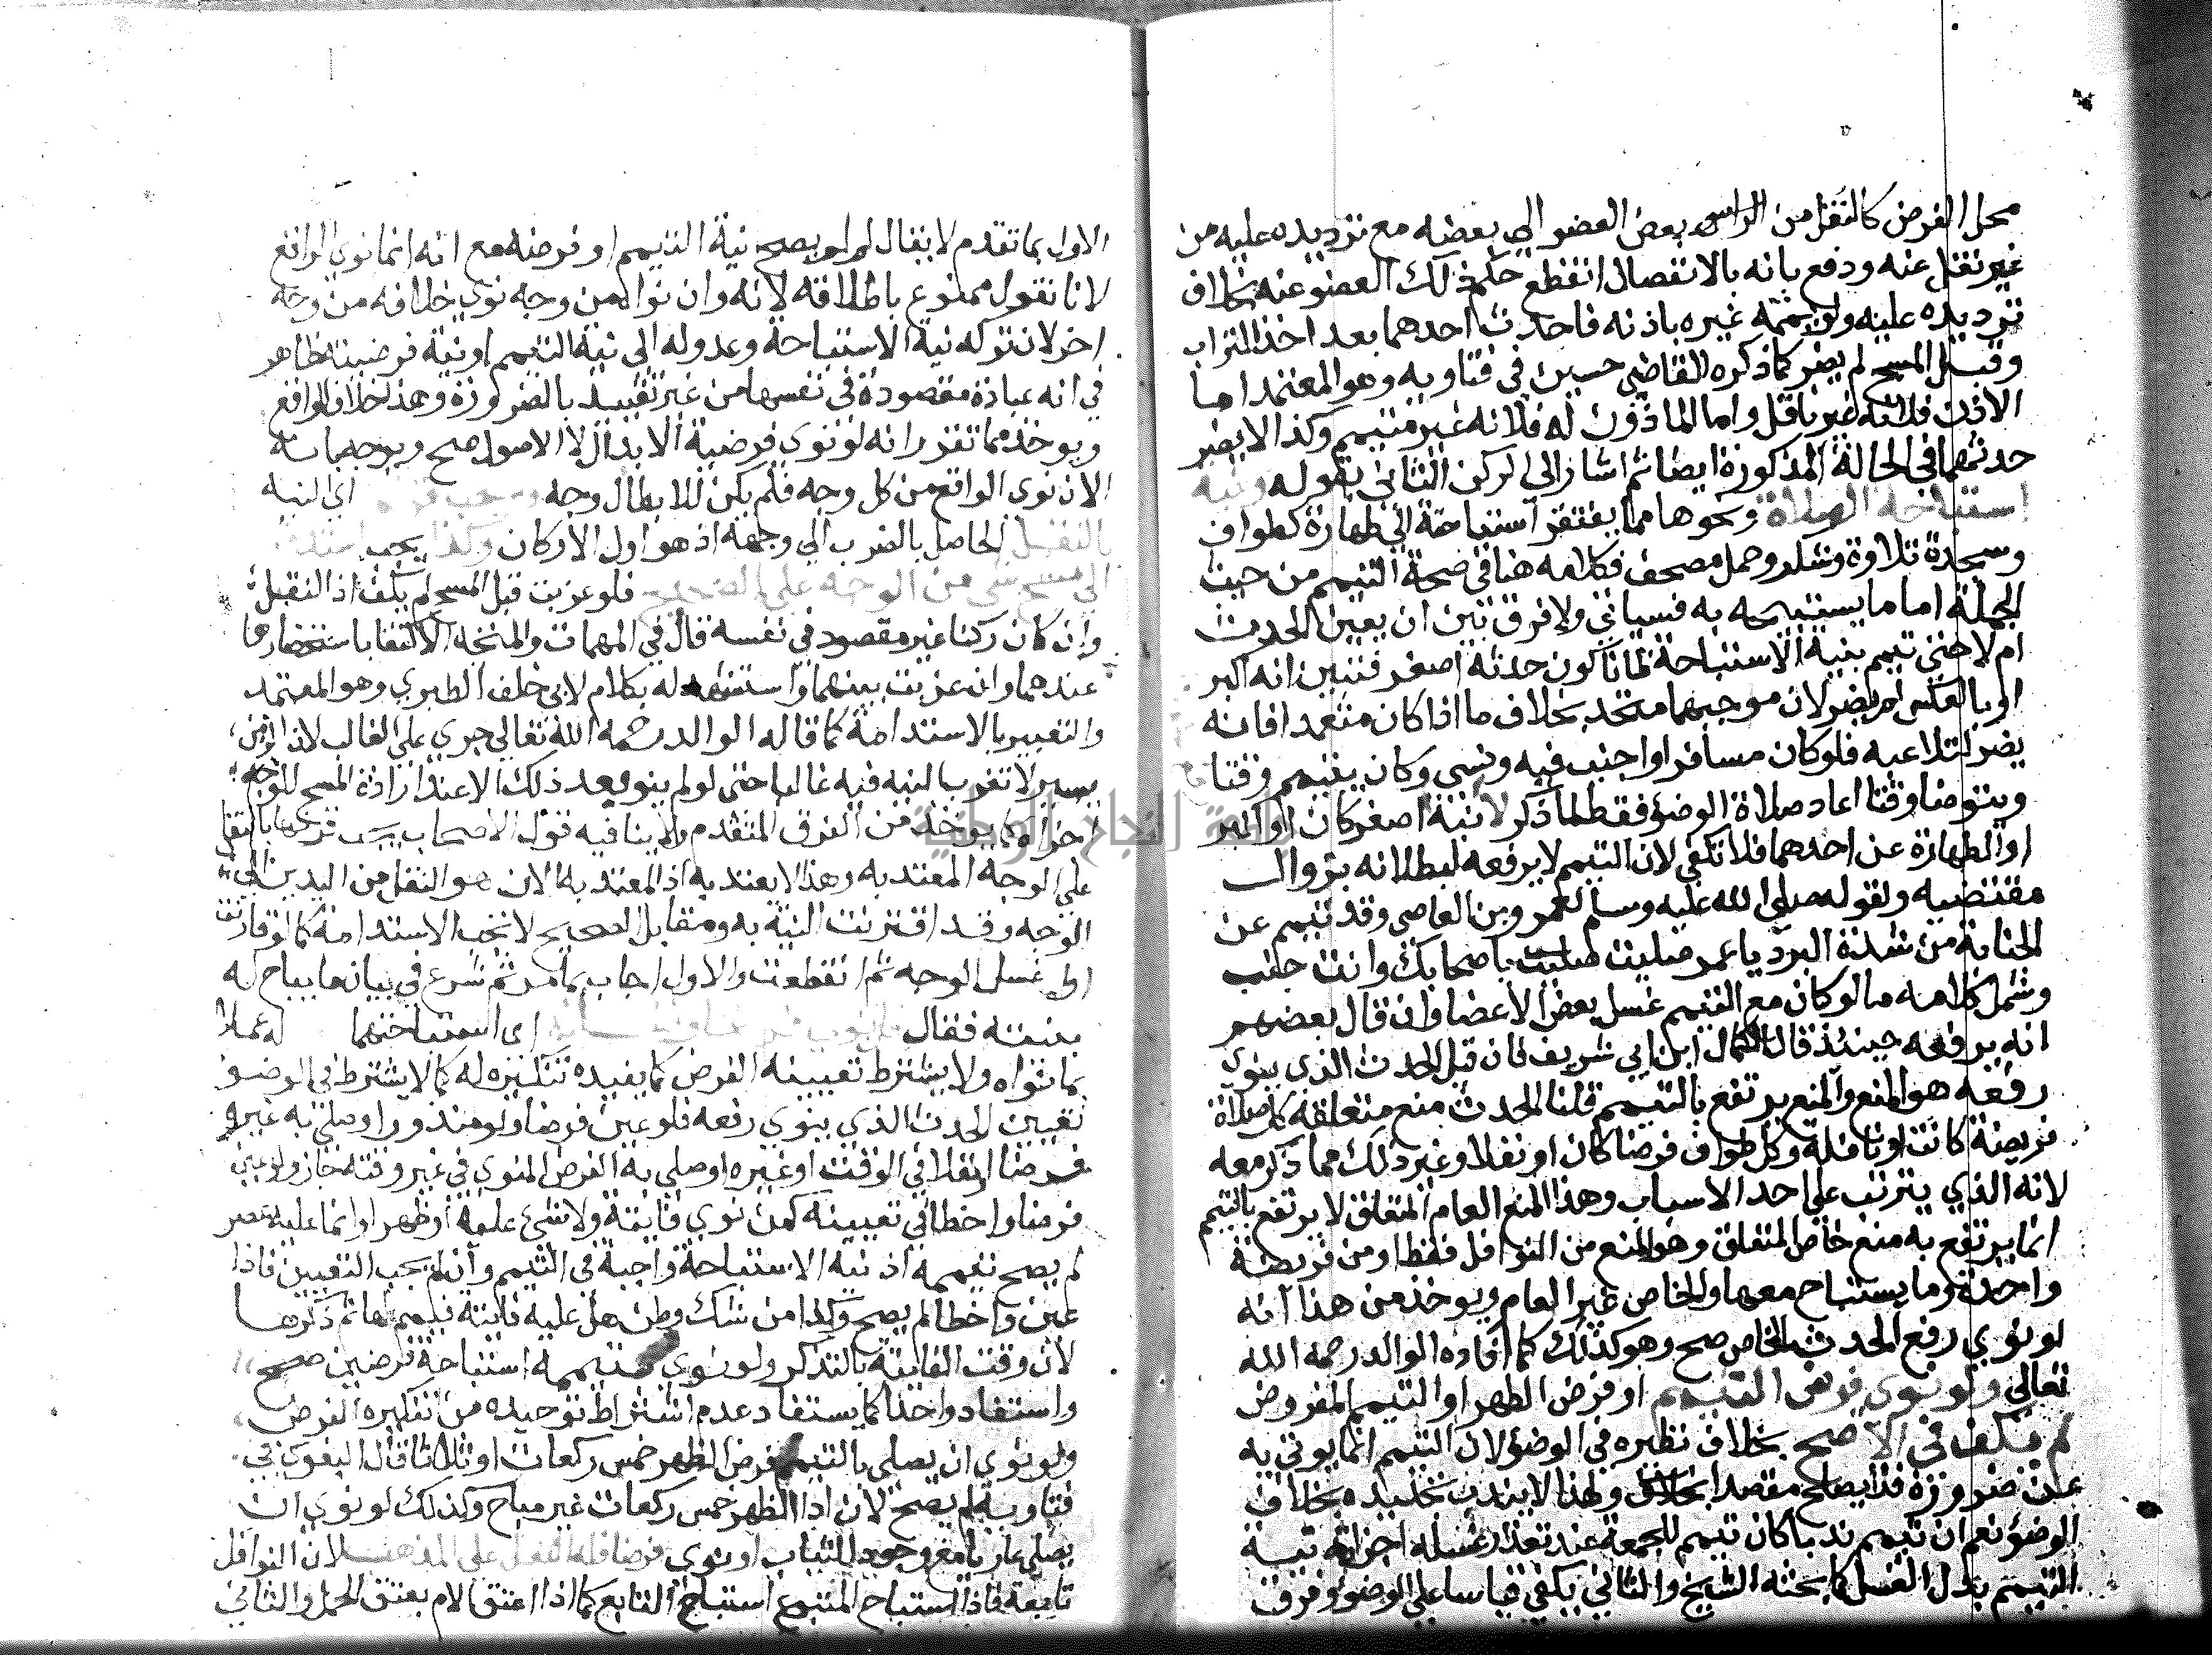 محل الفرض كالنقل من الراس بعض العضو الي بعضه مع ترديده عليه من
غير نقل عنه ودفع بانه بالانفصال انقطع حكم ذلك العضو عنه بخلاف
ترديده عليه ولو يممه غيره باذنه فاحدث احدهما بعد اخذ التراب
وقبل المسح لم يضر كما ذكره القاضي حسين في فتاويه وهو المعتمد اما
الاذن فلانه غير ناقل واما الماذون له فلانه غير متيمم وكذا لا يضر
حدثهما في الحالة المذكورة ايضا ثم اشار الى الركن الثاني بقوله ونية
استباحة الصلاة ونحوها مما يفتقر استباحته الي طهارة كطواف
وسجدة تلاوة وشكر وحمل مصحف فكلامه هنا في صحة التيمم من حيث
الجملة اما ما يستبيحه به فسياتي ولا فرق بين ان يعين الحدث
ام لا حتي تيمم بنية الاستباحة ظانا كون حدثه اصغر فتبين انه اكبر
او بالعكس لم يضر لان موجبهما متحد بخلاف ما اذا كان متعمدا فانه
يضر لتلاعبه فلو كان مسافرا واجنب فيه ونسي وكان يتيمم وقتا
ويتوضا وقتا اعاد صلاة الوضوء فقط لما ذكر لا نية اصغر كان او اكبر
او الطهارة عن احدهما فلا تكفي لان التيمم لا يرفعه لبطلانه بزوال
مقتضيه ولقوله صلي الله عليه وسلم لعمرو بن العاصي وقد تيمم عن
الجنابة من شدة البرد يا عمرو صليت باصحابك وانت جنب
وشمل كلامه ما لو كان مع التيمم غسل بعض الاعضا وان قال بعضهم
انه يرفعه حينئذ قال الكمال ابن ابي شريف فان قيل الحدث الذي ينوي
رفعه هو المنع والمنع يرتفع بالتيمم قلنا الحدث منع متعلقه كل صلاة
فريضة كانت او نافلة وكل طواف فرضا كان او نفلا وغير ذلك مما ذكر معه
لانه الذي يترتب علي احد الاسباب وهذا المنع العام المتعلق لا يرتفع بالتيمم
انما يرتفع به منع خاص المتعلق وهو المنع من النوافل فقط او من فريضة
واحدة وما يستباح معها والخاص غير العام ويوخذ من هذا انه
لو نوي رفع الحدث الخاص صح وهو كذلك كما افاده الوالد رحمه الله
تعالي ولو نوي فرض التيمم او فرض الطهر او التيمم المفروض
لم يكف في الاصح بخلاف نظيره في الوضوء لان التيمم انما يوتي به
عن ضرورة فلا يصلح مقصدا ولهذا لا يندب تجديده بخلاف
الوضوء نعم ان تيمم ندبا كان تيمم للجمعة عند تعذر غسله اجزاته نية
التيمم بدل الغسل كما بحثه الشيخ والثاني يكفي قياسا علي الوضوء وفرق
الاول بما تقدم لا يقال لم لم يصح نية التيمم او فرضه مع انه انما نوي الواقع
لانا نقول ممنوع باطلاقه لانه وان نواه من وجه نوي خلافه من وجه
اخر لان تركه نية الاستباحة وعدوله الى نية التيمم او نية فرضيته ظاهر
في انه عبادة مقصودة في نفسها من غير تقييد بالضرورة وهذا خلاف الواقع
ويوخذ مما تقرر انه لو نوي فرضية الابدال لا الاصول صح ويوجه بانه
الان نوي الواقع من كل وجه فلم يكن للابطال وجه ويجب قرنها اي النية
بالنقل الحاصل بالضرب الي وجهه اذ هو اول الاركان وكذا يجب
الي مسح شي من الوجه علي الصحيح فلو عزبت قبل المسح لم يكف اذ النقل
وان كان ركنا غير مقصود في نفسه قال في المهمات والمتجه الاكتفا باستحضارها
عندهما وان عزبت بينهما واستشهد له بكلام لابي خلف الطبري وهو المعتمد
والتعبير بالاستدامة كما قاله الوالد رحمه الله تعالي جري علي الغالب لان الزمن
يسير لا تعزب النية فيه غالبا حتى لو لم ينو بعد ذلك الا عند ارادة المسح للوجه
اجزا كما يوخذ من الفرق المتقدم ولا ينافيه قول الاصحاب يجب قرنها بالنقل
علي الوجه المعتد به وهذا لا يعتد به اذ المعتد به الان هو النقل من اليدين الي
الوجه وقد اقترنت النية به ومقابل الصحيح لا تجب الاستدامة كما لو قارنت
اول غسل الوجه ثم انقطعت والاول اجاب بما مر ثم شرع في بيان ما يباح له
بنيته فقال فان نوي فرضا ونفلا اي استباحتهما له عملا
بما نواه ولا يشترط تعيينه الفرض كما يفيده تنكيره له كما لا يشترط في الوضوء
تعيين الحدث الذي ينوي رفعه فلو عين فرضا ولو منذورا وصلي به غيره
فرضا او نفلا في الوقت او غيره او صلي به الفرض المنوي في غير وقته جاز ولو عين
فرضا واخطا في تعيينه كمن نوي فايتة ولا شيء عليه او ظهرا وانما عليه عصر
لم يصح تيممه اذ نية الاستباحة واجبة في التيمم وان لم يجب التعيين فاذا
عين واخطا لم يصح وكذا من شك وظن هل عليه فايتة فتيمم لها ثم ذكرها
لان وقت الفايتة بالتذكر ولو نوي بتيممه استباحة فرضين صح
واستفاد واحدا كما يستفاد عدم اشتراط توحيده من تنكيره الفرض
ولو نوي ان يصلي بالتيمم فرض الظهر خمس ركعات او ثلاثا قال البغوي في
فتاويه لم يصح لان ادا الظهر خمس ركعات غير مباح وكذلك لو نوي ان
يصلي عاريا مع وجود الثياب او نوي فرضا فله النفل علي المذهب لان النوافل
تابعة فاذا استباح المتبوع استباح التابع كما اذا اعتق الام يعتق الحمل والثاني
جامعة النجاح الوطنية